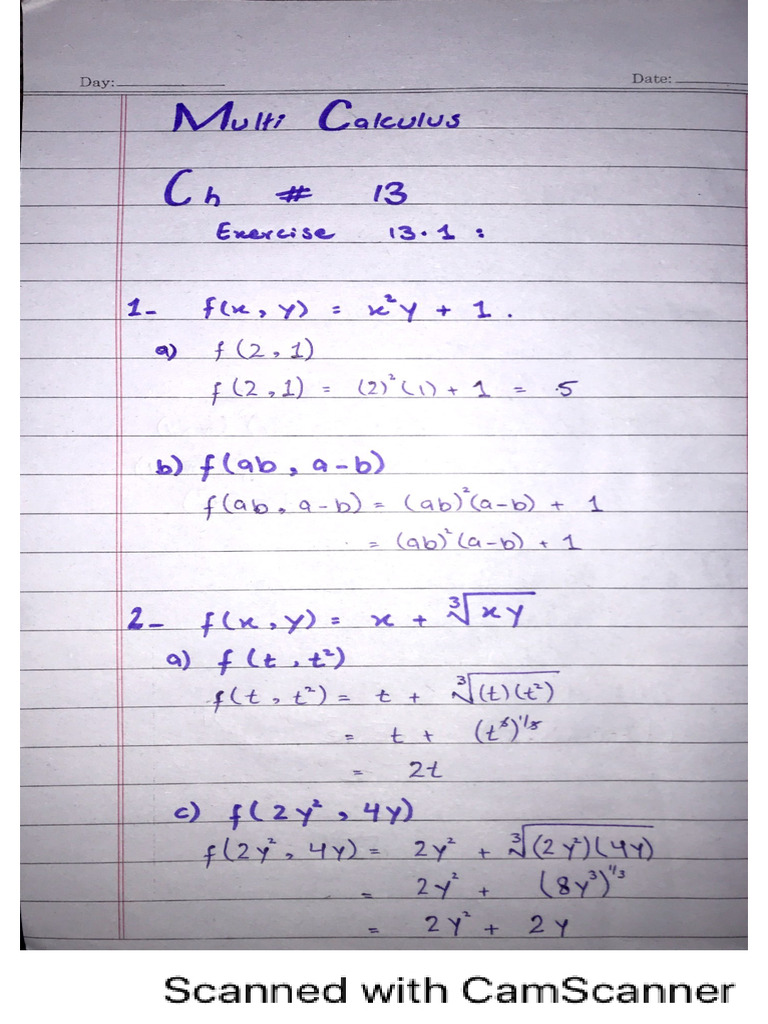 Day:
Date:
Multi Calculus
Ch # 13
Exercise 13.1 :
1- f(x, y) = x²y + 1.
a) f(2, 1)
f(2, 1) = (2)²(1) + 1 = 5
b) f(ab, a-b)
f(ab, a-b) = (ab)²(a-b) + 1
= (ab)²(a-b) + 1
2- f(x, y) = x + ∛xy
a) f(t, t²)
f(t, t²) = t + ∛(t)(t²)
= t + (t³)^1/3
= 2t
c) f(2y², 4y)
f(2y², 4y) = 2y² + ∛(2y²)(4y)
= 2y² + (8y³)^1/3
= 2y² + 2y
Scanned with CamScanner